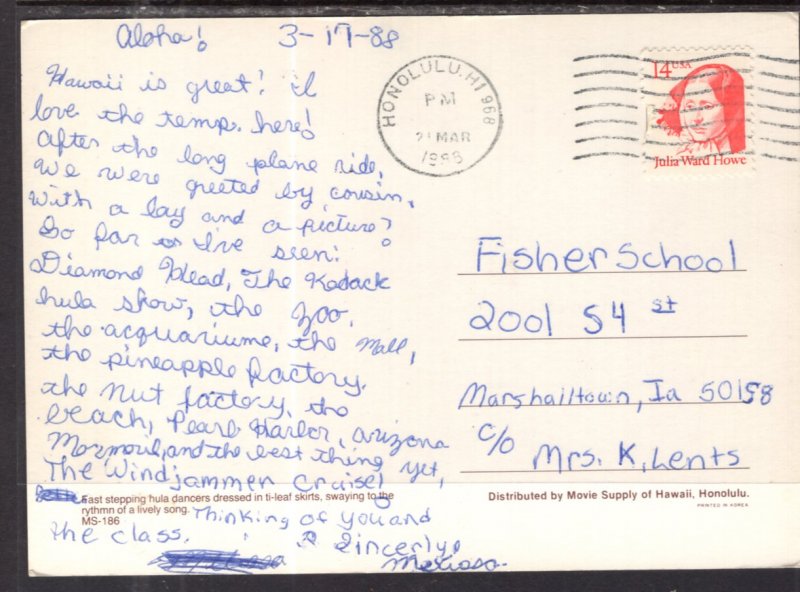 Aloha! 3-17-88
Hawaii is great! I
love the temp. here!
After the long plane ride,
We were greeted by cousin,
with a lay and a picture!
So far I've seen:
Diamond Head, The Kodack
hula show, the zoo,
the acquariume, the Mall,
the pineapple factory,
the nut factory, the
beach, Pearl Harbor, arizona
and the best thing yet,
The Windjammer Cruise!
Fast stepping hula dancers dressed in ti-leaf skirts, swaying to the
rythmn of a lively song.
MS-186
Thinking of you and
the class.
Sincerly,
Melissa
HONOLULU, HI 968
PM
21 MAR
1988
14 USA
Julia Ward Howe
Fisher School
2001 S 4 st
Marshalltown, Ia 50158
c/o
Mrs. K. Lents
Distributed by Movie Supply of Hawaii, Honolulu.
PRINTED IN KOREA